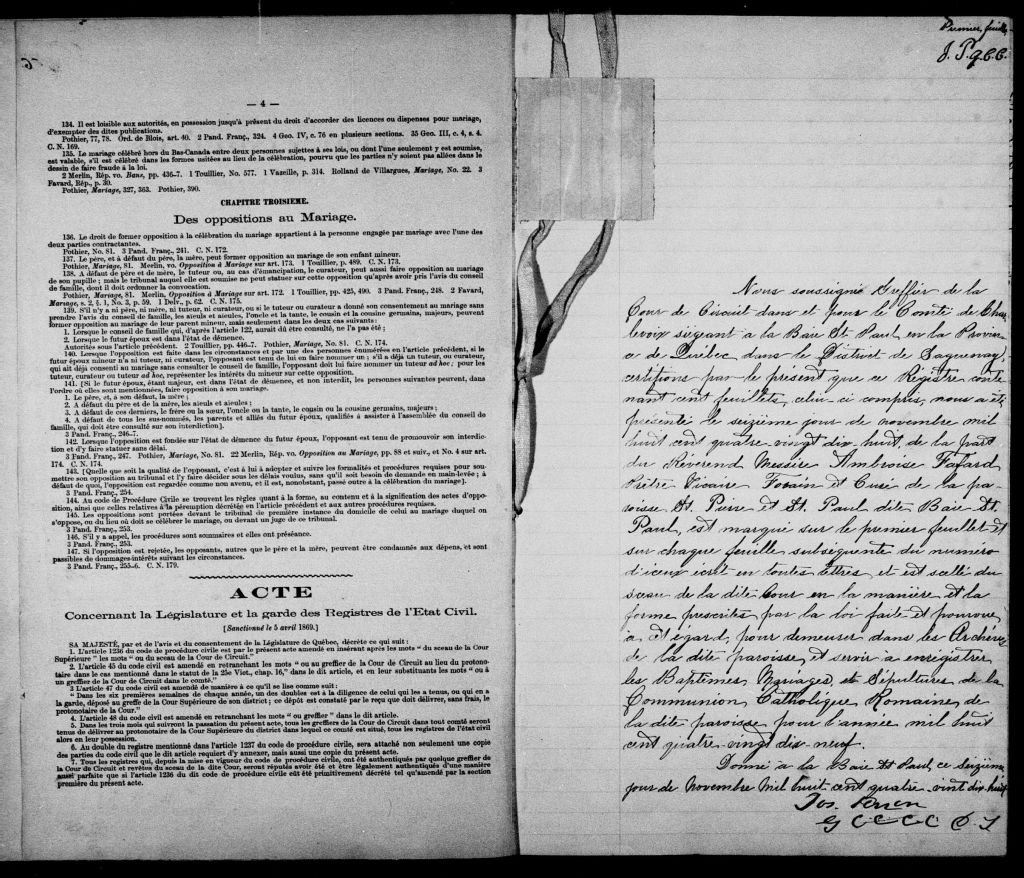 — 4 —
134. Il est loisible aux autorités, en possession jusqu'à présent du droit d'accorder des licences ou dispenses pour mariage,
d'exempter des dites publications.
Pothier, 77, 78. Ord. de Blois, art. 40. 2 Pand. Franç., 324. 4 Geo. IV, c. 76 en plusieurs sections. 35 Geo. III, c. 4, s. 4.
C. N. 169.
135. Le mariage célébré hors du Bas-Canada entre deux personnes sujettes à ses lois, ou dont l'une seulement y est soumise,
est valable, s'il est célébré dans les formes usitées au lieu de la célébration, pourvu que les parties n'y soient pas allées dans le
dessin de faire fraude à la loi.
2 Merlin, Rép. vo. Bans, pp. 436-7. 1 Touillier, No. 577. 1 Vazeille, p. 314. Rolland de Villargues, Mariage, No. 22. 3
Favard, Rép., p. 30.
Pothier, Mariage, 327, 363. Pothier, 390.
CHAPITRE TROISIEME.
Des oppositions au Mariage.
136. Le droit de former opposition à la célébration du mariage appartient à la personne engagée par mariage avec l'une des
deux parties contractantes.
Pothier, No. 81. 3 Pand. Franç., 241. C. N. 172.
137. Le père, et à défaut du père, la mère, peut former opposition au mariage de son enfant mineur.
Pothier, Mariage, 81. Merlin, vo. Opposition à Mariage sur art. 173. 1 Touillier, p. 489. C. N. 173.
138. A défaut de père et de mère, le tuteur ou, au cas d'émancipation, le curateur, peut aussi faire opposition au mariage
de son pupille; mais le tribunal auquel elle est soumise ne peut statuer sur cette opposition qu'après avoir pris l'avis du conseil
de famille, dont il doit ordonner la convocation.
Pothier, Mariage, 81. Merlin, Opposition à Mariage sur art. 172. 1 Touillier, pp. 425, 490. 3 Pand. Franç., 248. 2 Favard,
Mariage, s. 2, § 1, No. 3, p. 59. 1 Delv., p. 62. C. N. 175.
139. S'il n'y a ni père, ni mère, ni tuteur, ni curateur, ou si le tuteur ou curateur a donné son consentement au mariage sans
prendre l'avis du conseil de famille, les aïeuls et aïeules, l'oncle et la tante, le cousin et la cousine germains, majeurs, peuvent
former opposition au mariage de leur parent mineur, mais seulement dans les deux cas suivants:
1. Lorsque le conseil de famille qui, d'après l'article 122, aurait dû être consulté, ne l'a pas été;
2. Lorsque le futur époux est dans l'état de démence.
Autorités sous l'article précédent. 2 Touillier, pp. 446-7. Pothier, Mariage, No. 81. C. N. 174.
140. Lorsque l'opposition est faite dans les circonstances et par une des personnes énumérées en l'article précédent, si le
futur époux mineur n'a ni tuteur, ni curateur, l'opposant est tenu de lui en faire nommer un; s'il a déjà un tuteur, ou curateur,
qui ait déjà consenti au mariage sans consulter le conseil de famille, l'opposant doit lui faire nommer un tuteur ad hoc; pour les
tuteur, curateur ou tuteur ad hoc, représenter les intérêts du mineur sur cette opposition.
141. [Si le futur époux, étant majeur, est dans l'état de démence, et non interdit, les personnes suivantes peuvent, dans
l'ordre où elles sont mentionnées, faire opposition à son mariage.
1. Le père, et, à son défaut, la mère;
2. A défaut du père et de la mère, les aïeuls et aïeules;
3. A défaut de ces derniers, le frère ou la sœur, l'oncle ou la tante, le cousin ou la cousine germains, majeurs;
4. A défaut de tous les sus-nommés, les parents et alliés du futur époux, qualifiés à assister à l'assemblée du conseil de
famille, qui doit être consulté sur son interdiction.]
3 Pand. Franç., 246-7.
142. Lorsque l'opposition est fondée sur l'état de démence du futur époux, l'opposant est tenu de promouvoir son interdic-
tion et d'y faire statuer sans délai.
3 Pand. Franç., 247. Pothier, Mariage, No. 81. 22 Merlin, Rép. vo. Opposition au Mariage, pp. 88 et suiv., et No. 4 sur art.
174. C. N. 174.
143. [Quelle que soit la qualité de l'opposant, c'est à lui à adopter et suivre les formalités et procédures requises pour sou-
mettre son opposition au tribunal et l'y faire décider sous les délais voulus, sans qu'il soit besoin de demande en main-levée; à
défaut de quoi, l'opposition est regardée comme non avenu, et il est, nonobstant, passé outre à la célébration du mariage].
3 Pand. Franç., 254.
144. Au code de Procédure Civile se trouvent les règles quant à la forme, au contenu et à la signification des actes d'oppo-
sition, ainsi que celles relatives à la péremption décrétée en l'article précédent et aux autres procédures requises.
145. Les oppositions sont portées devant le tribunal de première instance du domicile de celui au mariage duquel on
s'oppose, ou du lieu où doit se célébrer le mariage, ou devant un juge de ce tribunal.
3 Pand. Franç., 253.
146. S'il y a appel, les procédures sont sommaires et elles ont préséance.
3 Pand. Franç., 253.
147. Si l'opposition est rejetée, les opposants, autres que le père et la mère, peuvent être condamnés aux dépens, et sont
passibles de dommages-intérêts suivant les circonstances.
3 Pand. Franç., 255-6. C. N. 179.
ACTE
Concernant la Législature et la garde des Registres de l'Etat Civil.
[Sanctionné le 5 avril 1869.]
SA MAJESTÉ, par et de l'avis et du consentement de la Législature de Québec, décrète ce qui suit:
1. L'article 1236 du code de procédure civile est par le présent acte amendé en insérant après les mots "du sceau de la Cour
Supérieure" les mots "ou du sceau de la Cour de Circuit."
2. L'article 45 du code civil est amendé en retranchant les mots "ou au greffier de la Cour de Circuit au lieu du protono-
taire dans le cas mentionné dans le statut de la 25e Vict., chap. 16," dans le dit article, et en leur substituants les mots "ou à
un greffier de la Cour de Circuit dans le comté."
3 L'article 47 du code civil est amendé de manière à ce qu'il se lise comme suit:
"Dans les six premières semaines de chaque année, un des doubles est à la diligence de celui qui les a tenus, ou qui en a
la garde, déposé au greffe de la Cour Supérieure de son district; ce dépôt est constaté par le reçu que doit délivrer, sans frais, le
protonotaire de la Cour."
4. L'article 48 du code civil est amendé en retranchant les mots "ou greffier" dans le dit article.
5. Dans les trois mois qui suivront la passation du présent acte, tous les greffiers de la Cour de Circuit dans tout comté seront
tenus de délivrer au protonotaire de la Cour Supérieure du district dans lequel ce comté est situé, tous les registres de l'état civil
alors en leur possession.
6. Au double du registre mentionné dans l'article 1237 du code de procédure civile, sera attaché non seulement une copie
des parties du code civil que le dit article requiert d'y annexer, mais aussi une copie du présent acte.
7. Tous les registres qui, depuis la mise en vigueur du code de procédure civile, ont été authentiqués par quelque greffier de
la Cour de Circuit et revêtus du sceau de la dite Cour, seront réputés avoir été et être légalement authentiqués d'une manière
aussi parfaite que si l'article 1236 du dit code de procédure civile eût été primitivement décrété tel qu'amendé par la section
première du présent acte.
Premier feuille
Nous soussigné Greffier de la
Cour de Circuit dans et pour le Comté de Char
levoix siégeant à la Baie St Paul, en la Provin
ce de Québec dans le District de Saguenay,
certifions par le présent que ce Régistre conte
nant cent feuillets, celui-ci compris, nous a été
présenté le seizième jour de novembre mil
huit cent quatre-vingt dix huit, de la part
du Révérend Messire Ambroise Fafard
Prêtre Vicaire Forain et Curé de la pa-
roisse St. Pierre et St. Paul dite Baie St.
Paul, est marqué sur le premier feuillet et
sur chaque feuille subséquente du numéro
d'iceux écrit en toutes lettres, et est scellé du
sceau de la dite Cour en la manière et la
forme prescrites par la loi faite et pourvue
à cet égard, pour demeurer dans les Archives
de la dite paroisse, et servir à enregistrer
les Baptêmes, Mariages et Sépultures de la
Communion Catholique Romaine de
la dite paroisse pour l'année mil huit
cent quatre-vingt dix-neuf.
Donné à la Baie St Paul, ce seizième
jour de novembre mil huit cent quatre-vint dix-huit